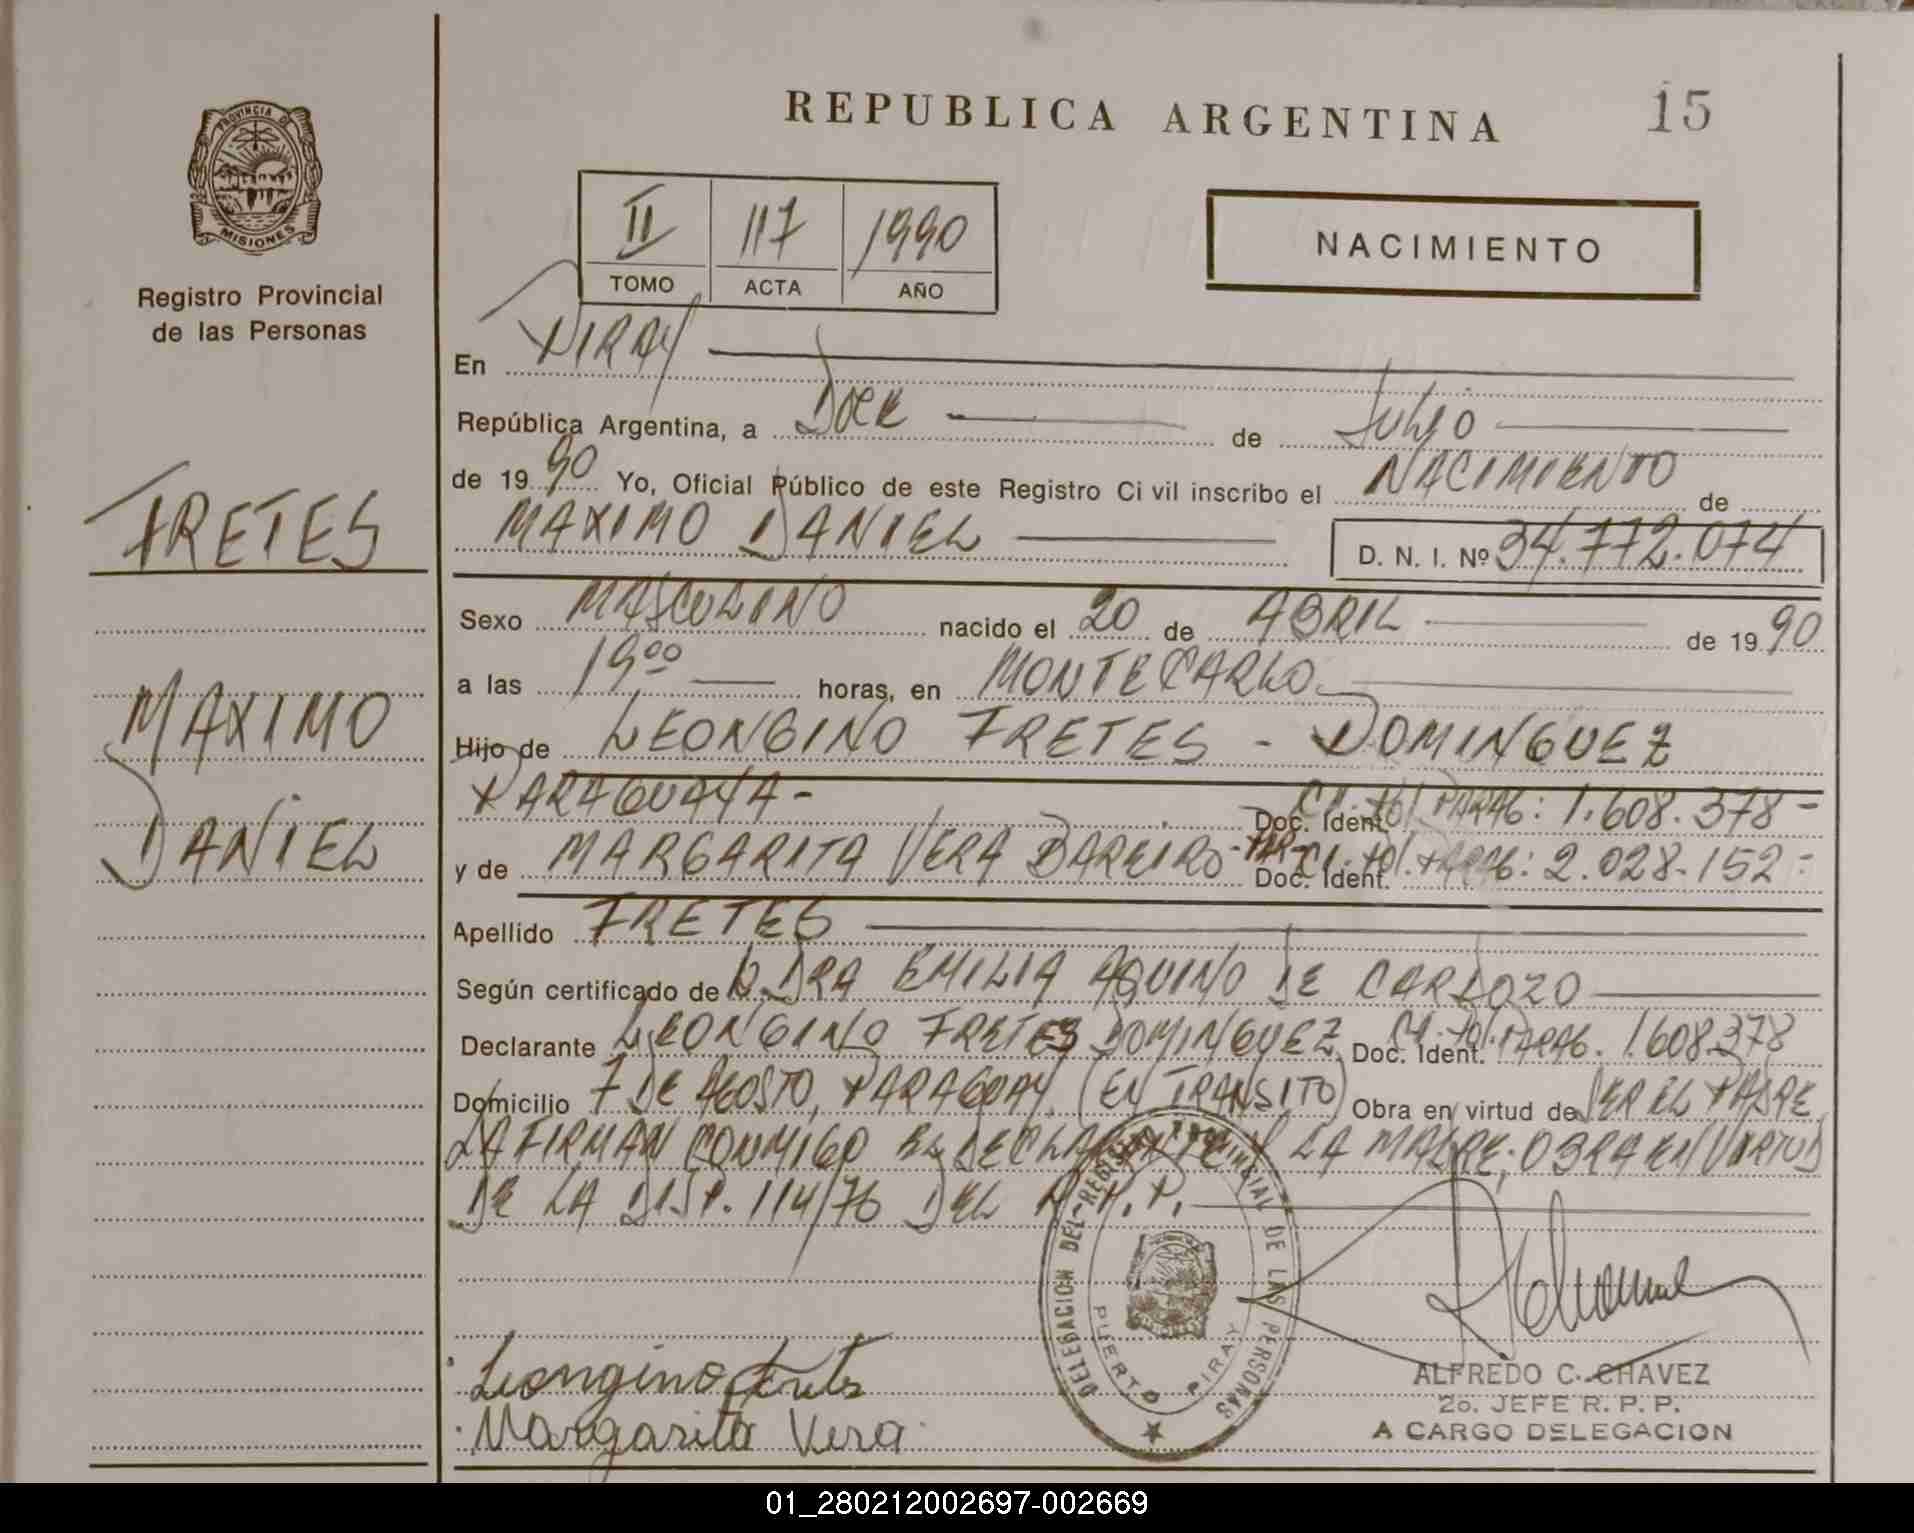 REPUBLICA ARGENTINA
15
PROVINCIA DE
MISIONES
Registro Provincial
de las Personas
II 117 1990
TOMO ACTA AÑO
NACIMIENTO
En PIRAY
República Argentina, a DOCE de JULIO
de 1990 Yo, Oficial Público de este Registro Civil inscribo el NACIMIENTO de
MAXIMO DANIEL D. N. I. Nº 34.772.074
FRETES
MAXIMO
DANIEL
Sexo MASCULINO nacido el 20 de ABRIL de 1990
a las 19 00 horas, en MONTECARLO
Hijo de LEONGINO FRETES - DOMINGUEZ
PARAGUAYA - Doc. Ident. CI. Pol. PARAG: 1.608.378 -
y de MARGARITA VERA BAREIRO - PAR - Doc. Ident. CI. Pol. PARAG: 2.028.152 -
Apellido FRETES
Según certificado de LA DRA EMILIA AQUINO DE CARDOZO
Declarante LEONGINO FRETES DOMINGUEZ Doc. Ident. CI. Pol. PARAG. 1.608.378
Domicilio 7 DE AGOSTO, PARAGUAY (EN TRANSITO) Obra en virtud de SER EL PADRE,
LA FIRMAN CONMIGO EL DECLARANTE Y LA MADRE; OBRA EN VIRTUD
DE LA DISP. 114/76 DEL R.P.P.
DELEGACION DEL REGISTRO PROVINCIAL DE LAS PERSONAS
PUERTO PIRAY
Leongino Fretes
Margarita Vera
ALFREDO C. CHAVEZ
2o. JEFE R. P. P.
A CARGO DELEGACION
01_280212002697-002669